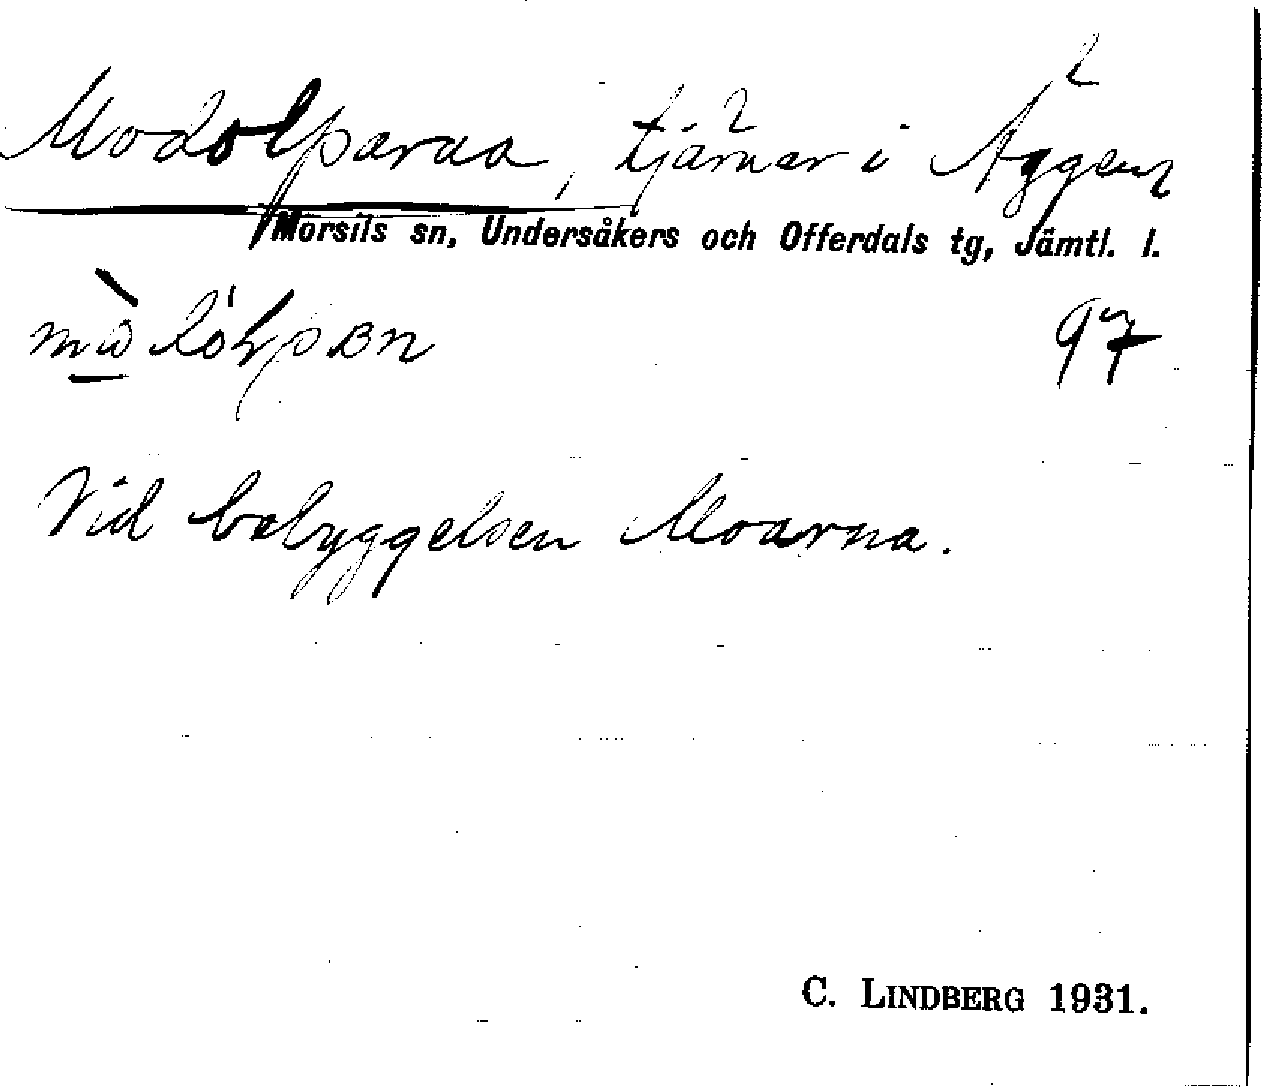 Modolparna, 2 tjärnar i Äggen 2
Mörsils sn, Undersåkers och Offerdals tg, Jämtl. l.
97
Vid bebyggelsen Moarna.
C. LINDBERG 1931.